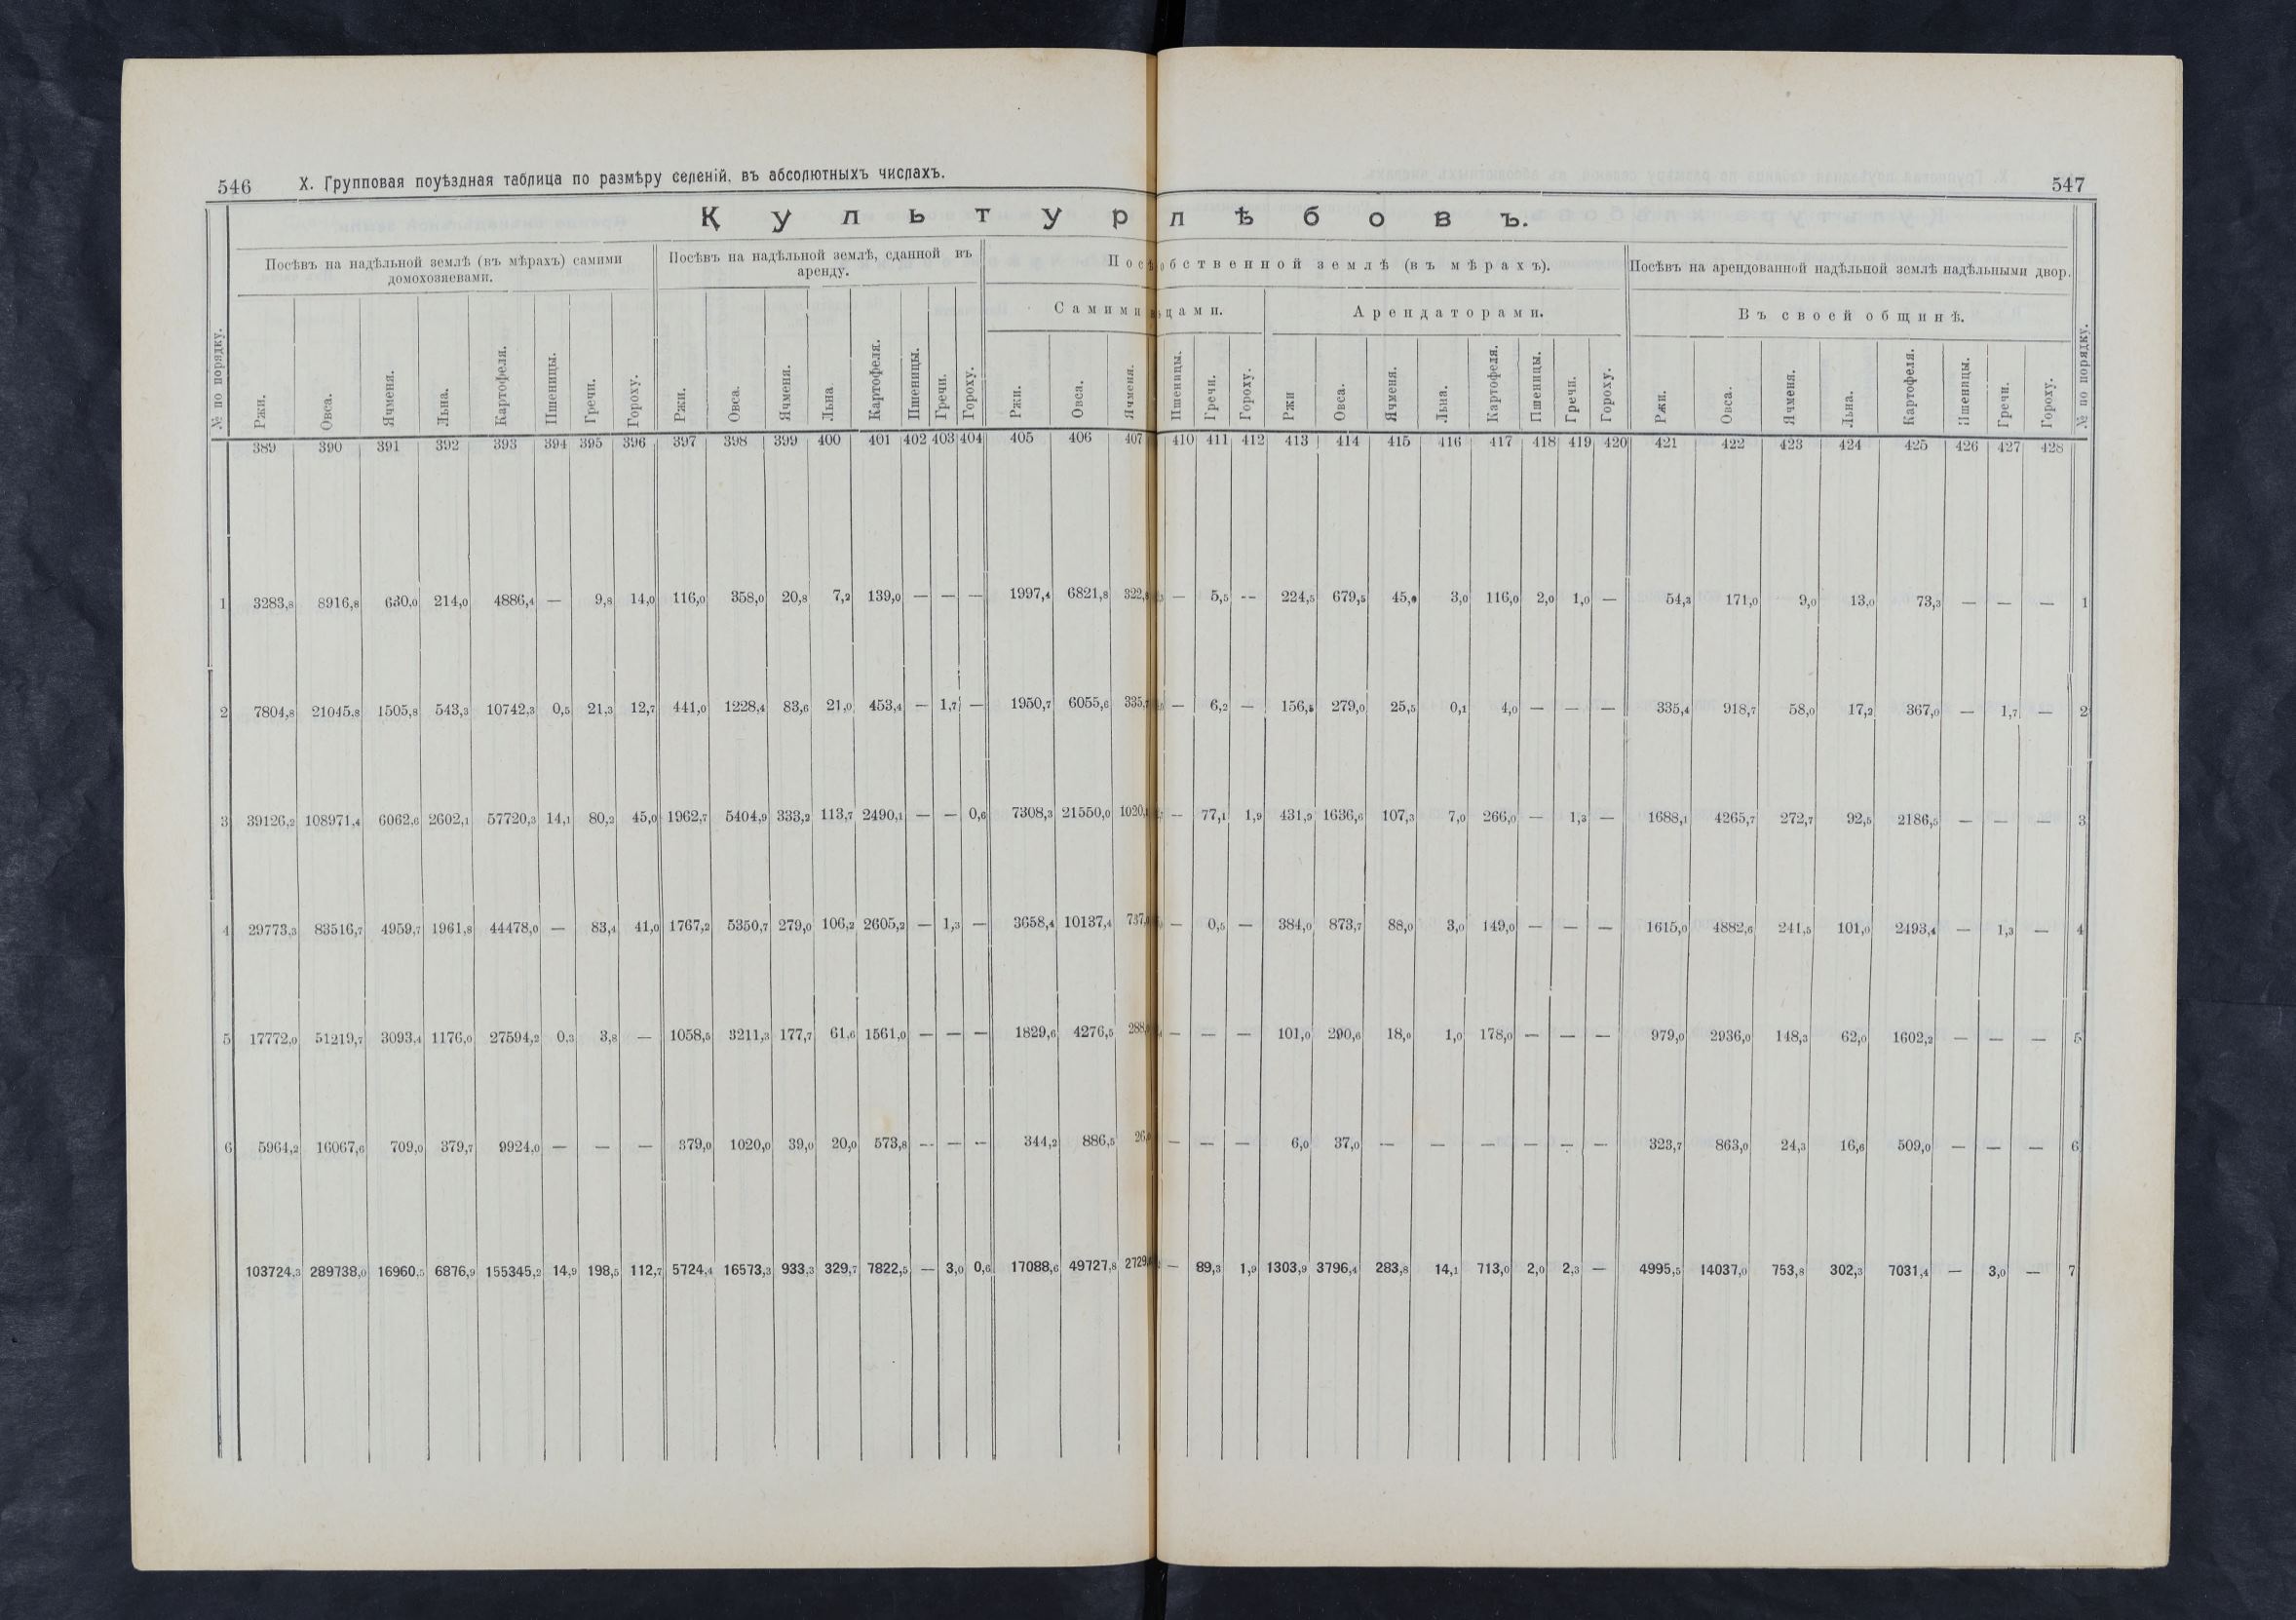 546 X. Групповая поуѣздная таблица по размѣру селеній, въ абсолютныхъ числахъ.
547
Культур лѣбовъ.
№ по порядку.
Посѣвъ на надѣльной землѣ (въ мѣрахъ) самими домохозяевами.
Посѣвъ на надѣльной землѣ, сданной въ аренду.
Пос обственной землѣ (въ мѣрахъ).
Посѣвъ на арендованной надѣльной землѣ надѣльными двор.
№ по порядку.
Самими цами.
Арендаторами.
Въ своей общинѣ.
Ржи. Овса. Ячменя. Льна. Картофеля. Пшеницы. Гречи. Гороху. Ржи. Овса. Ячменя. Льна Картофеля. Пшеницы. Гречи. Гороху. Ржи. Овса. Ячменя. Пшеницы. Гречи. Гороху. Ржи Овса. Ячменя. Льна. Картофеля. Пшеницы. Гречи. Гороху. Ржи. Овса. Ячменя. Льна. Картофеля. Пшеницы. Гречи. Гороху.
389 390 391 392 393 394 395 396 397 398 399 400 401 402 403 404 405 406 407 410 411 412 413 414 415 416 417 418 419 420 421 422 423 424 425 426 427 428
1 3283,8 8916,8 630,0 214,0 4886,4 — 9,8 14,0 116,0 358,0 20,8 7,2 139,0 — — — 1997,4 6821,8 322,8 — 5,5 -- 224,5 679,5 45,0 3,0 116,0 2,0 1,0 — 54,3 171,0 9,0 13,0 73,3 — — — 1
2 7804,8 21045,8 1505,8 543,3 10742,3 0,5 21,3 12,7 441,0 1228,4 83,6 21,0 453,4 — 1,7 — 1950,7 6055,6 335,7 — 6,2 — 156,5 279,0 25,5 0,1 4,0 — — — 335,4 918,7 58,0 17,2 367,0 — 1,7 — 2
3 39126,2 108971,4 6062,6 2602,1 57720,3 14,1 80,2 45,0 1962,7 5404,9 333,2 113,7 2490,1 — — 0,6 7308,3 21550,0 1020, — 77,1 1,9 431,9 1636,6 107,3 7,0 266,0 — 1,3 — 1688,1 4265,7 272,7 92,5 2186,5 — — — 3
4 29773,3 83516,7 4959,7 1961,8 44478,0 — 83,4 41,0 1767,2 5350,7 279,0 106,2 2605,2 — 1,3 — 3658,4 10137,4 737, — 0,5 — 384,0 873,7 88,0 3,0 149,0 — — — 1615,0 4882,6 241,5 101,0 2493,4 — 1,3 — 4
5 17772,0 51219,7 3093,4 1176,0 27594,2 0,3 3,8 — 1058,5 3211,3 177,7 61,6 1561,0 — — — 1829,6 4276,5 288, — — — 101,0 290,6 18,0 1,0 178,0 — — — 979,0 2936,0 148,3 62,0 1602,2 — — — 5
6 5964,2 16067,6 709,0 379,7 9924,0 — — — 379,0 1020,0 39,0 20,0 573,8 -- — -- 344,2 886,5 26, — — — 6,0 37,0 — — — — — — 323,7 863,0 24,3 16,6 509,0 — — — 6
103724,3 289738,0 16960,5 6876,9 155345,2 14,9 198,5 112,7 5724,4 16573,3 933,3 329,7 7822,5 — 3,0 0,6 17088,6 49727,8 2729, — 89,3 1,9 1303,9 3796,4 283,8 14,1 713,0 2,0 2,3 — 4995,5 14037,0 753,8 302,3 7031,4 — 3,0 — 7